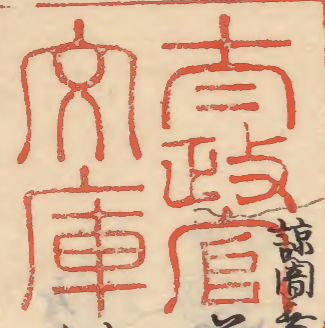 太政官
文庫
諒闇